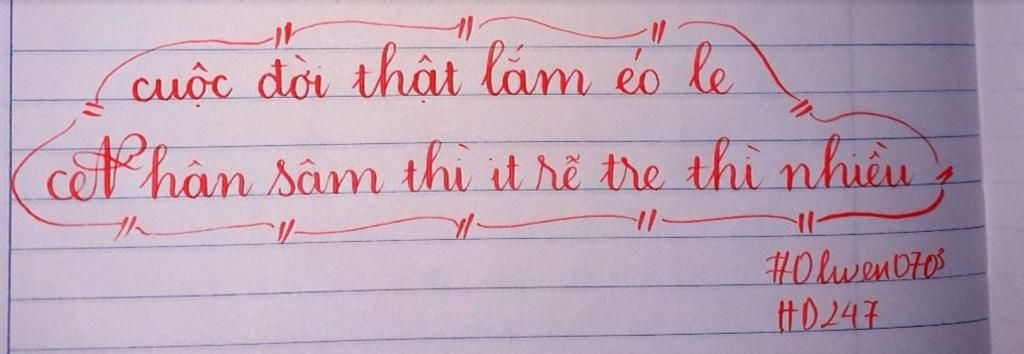 cuộc đời thật lắm éo le
Nhân sâm thì it rẽ tre thì nhiều
#Olwen0703
HD247